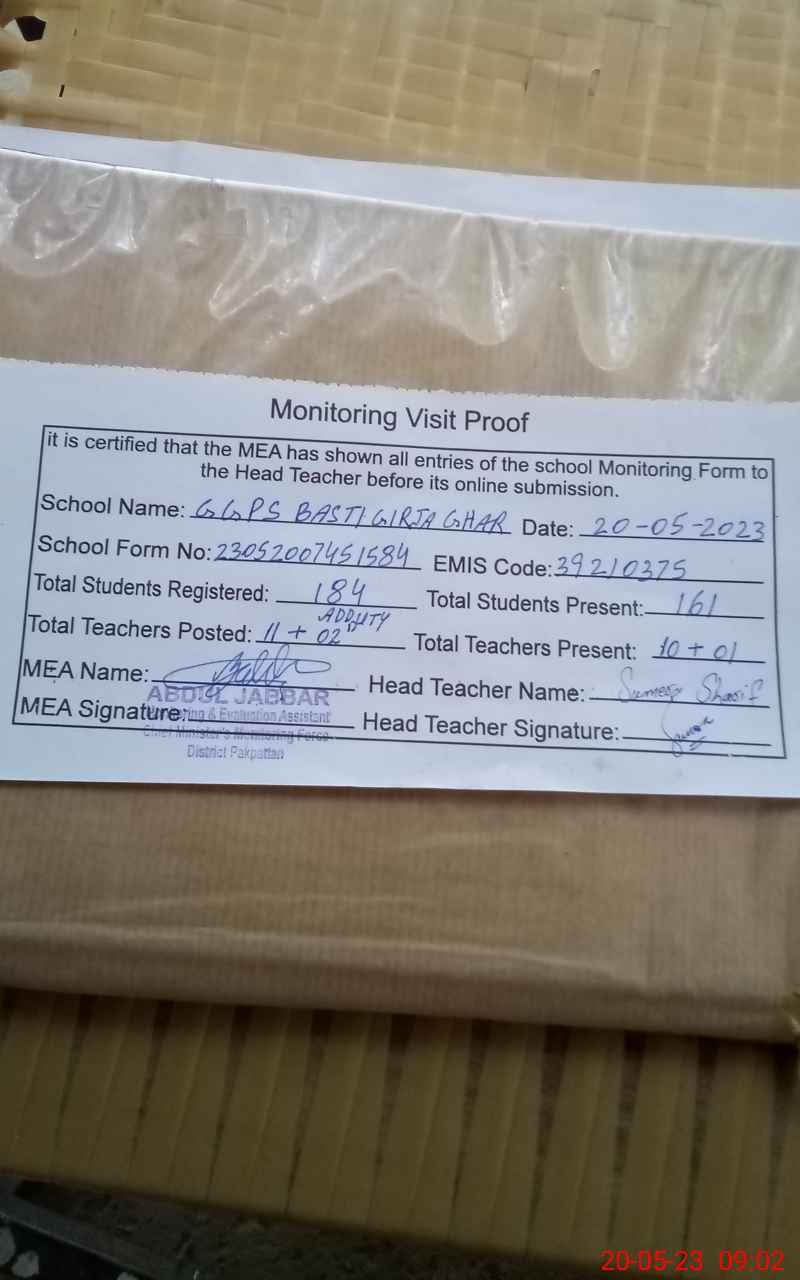 Monitoring Visit Proof
it is certified that the MEA has shown all entries of the school Monitoring Form to
the Head Teacher before its online submission.
School Name: GGPS BASTI GIRJA GHAR Date: 20-05-2023
School Form No: 23052007451584 EMIS Code: 39210375
Total Students Registered: 184 Total Students Present: 161
ADD DUTY
Total Teachers Posted: 11 + 02 Total Teachers Present: 10 + 01
MEA Name: Head Teacher Name: Sharif
ABDUL JABBAR
MEA Signature: Head Teacher Signature:
Monitoring & Evaluation Assistant
Chief Minister's Monitoring Force
District Pakpattan
20-05-23 09:02